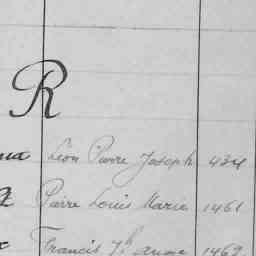 R
Léon Pierre Joseph 434
Pierre Louis Marie 1461
Francis 1462